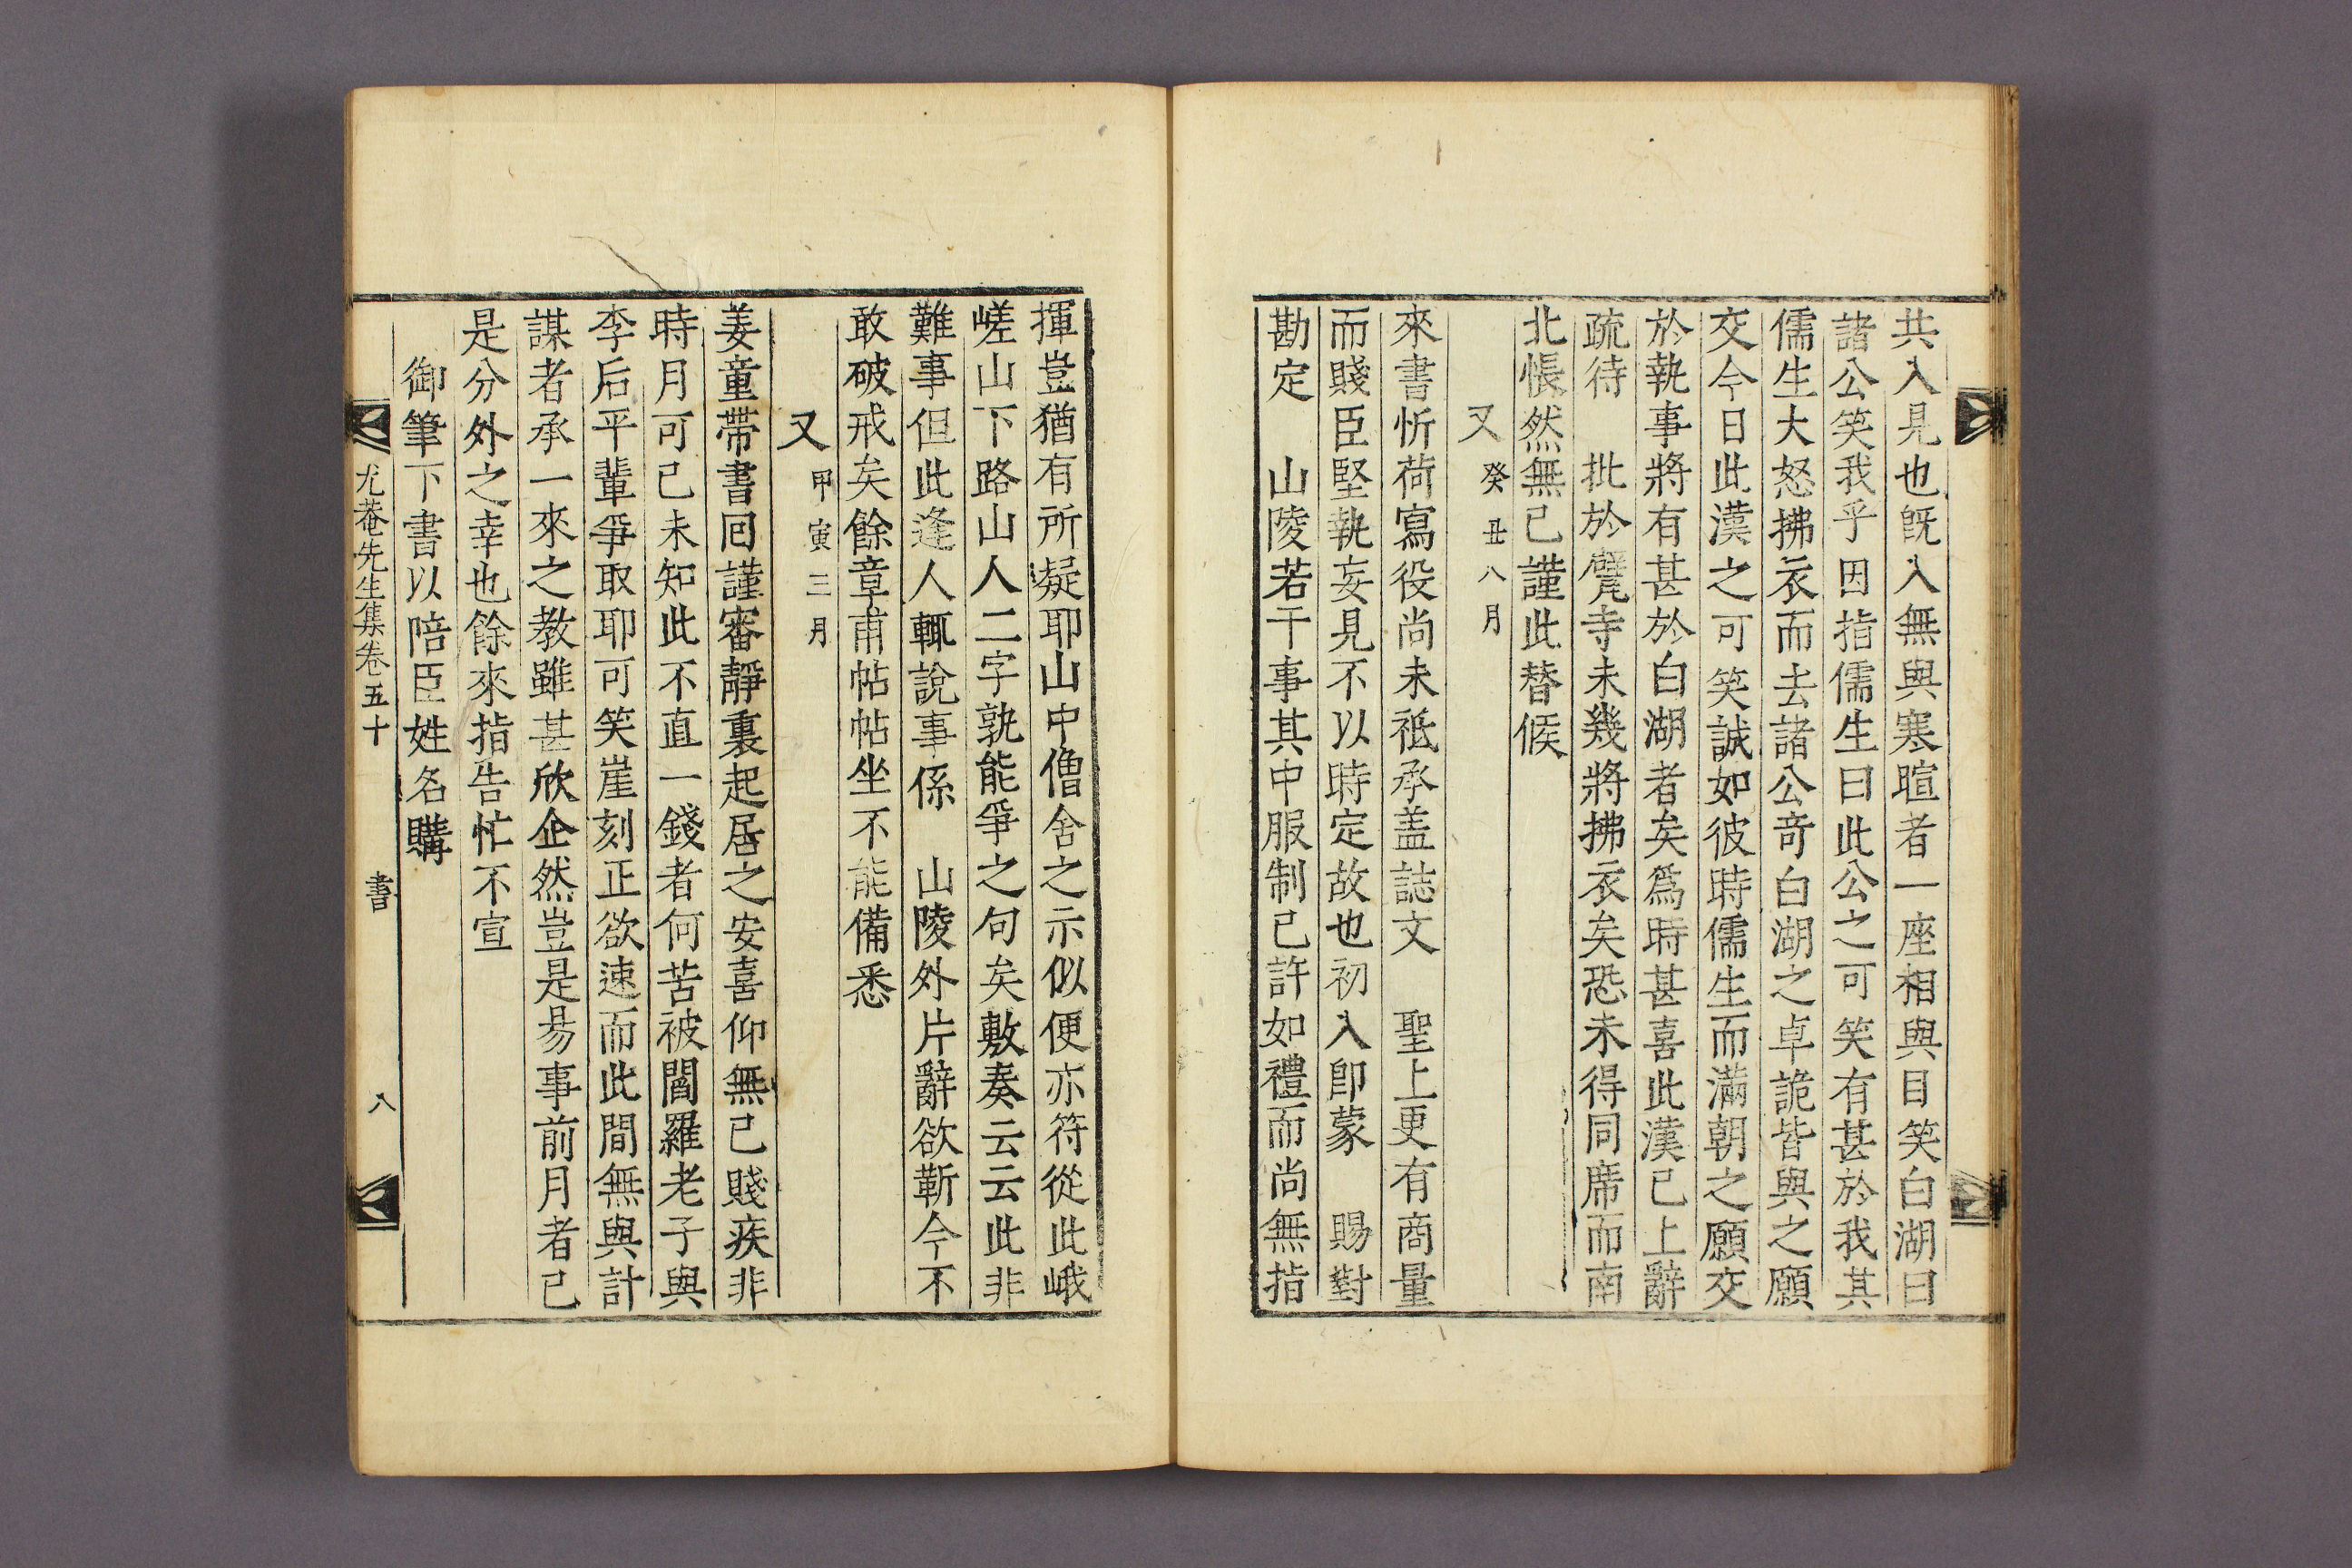 共入見也旣入無與寒暄者一座相與目笑白湖曰
諸公笑我乎因指儒生曰此公之可笑有甚於我其
儒生大怒拂衣而去諸公奇白湖之卓詭皆與之願
交今日此漢之可笑誠如彼時儒生而滿朝之願交
於執事將有甚於白湖者矣爲時甚喜此漢已上辭
疏待 批於甓寺未幾將拂衣矣恐未得同席而南
北悵然無已謹此替候
又 癸丑八月
來書忻荷寫役尚未祗承盖誌文 聖上更有商量
而賤臣堅執妄見不以時定故也初入卽蒙 賜對
勘定 山陵若干事其中服制已許如禮而尚無指
揮豈猶有所疑耶山中僧舍之示似便亦符從此峨
嵯山下路山人二字孰能爭之句矣敷奏云云此非
難事但此逢人輒說事係 山陵外片辭欲靳今不
敢破戒矣餘章甫帖帖坐不能備悉
又 甲寅三月
姜童帶書回謹審靜裏起居之安喜仰無已賤疾非
時月可已未知此不直一錢者何苦被閻羅老子與
李后平輩爭取耶可笑崖刻正欲速而此間無與計
謀者承一來之教雖甚欣企然豈是易事前月者已
是分外之幸也餘來指告忙不宣
御筆下書以陪臣姓名購
尤菴先生集卷五十 書 八